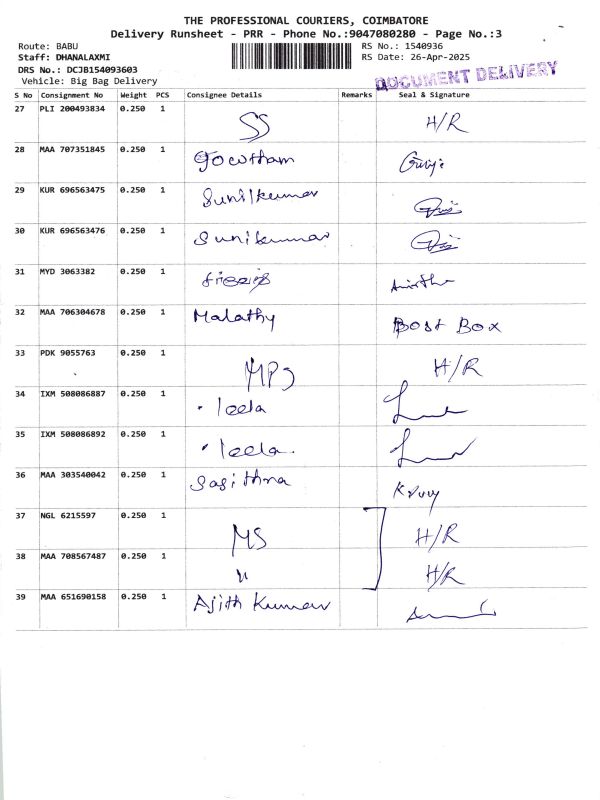 THE PROFESSIONAL COURIERS, COIMBATORE
Delivery Runsheet - PRR - Phone No.:9047080280 - Page No.:3
Route: BABU RS No.: 1540936
Staff: DHANALAXMI RS Date: 26-Apr-2025
DRS No.: DCJB154093603
Vehicle: Big Bag Delivery
DOCUMENT DELIVERY
S No Consignment No Weight PCS Consignee Details Remarks Seal & Signature
27 PLI 200493834 0.250 1 SS H/R
28 MAA 707351845 0.250 1 Gowtham
29 KUR 696563475 0.250 1 Sunilkumar
30 KUR 696563476 0.250 1 Sunilkumar
31 MYD 3063382 0.250 1
32 MAA 706304678 0.250 1 Malathy Bost Box
33 PDK 9055763 0.250 1 MPS H/R
34 IXM 508086887 0.250 1 leela
35 IXM 508086892 0.250 1 leela.
36 MAA 303540042 0.250 1
37 NGL 6215597 0.250 1 MS H/R
38 MAA 708567487 0.250 1 " H/R
39 MAA 651690158 0.250 1 Ajith Kumar